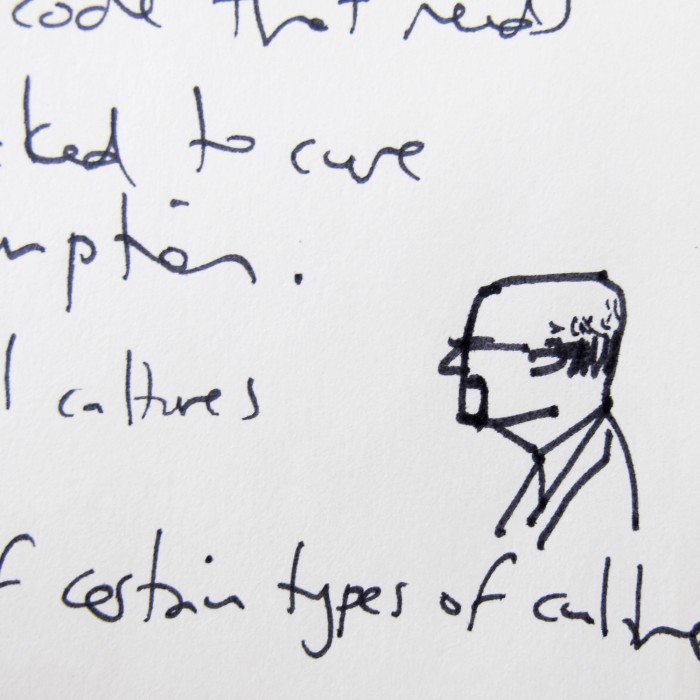 code that needs
ked to cure
mption.
l cultures
f certain types of cultu